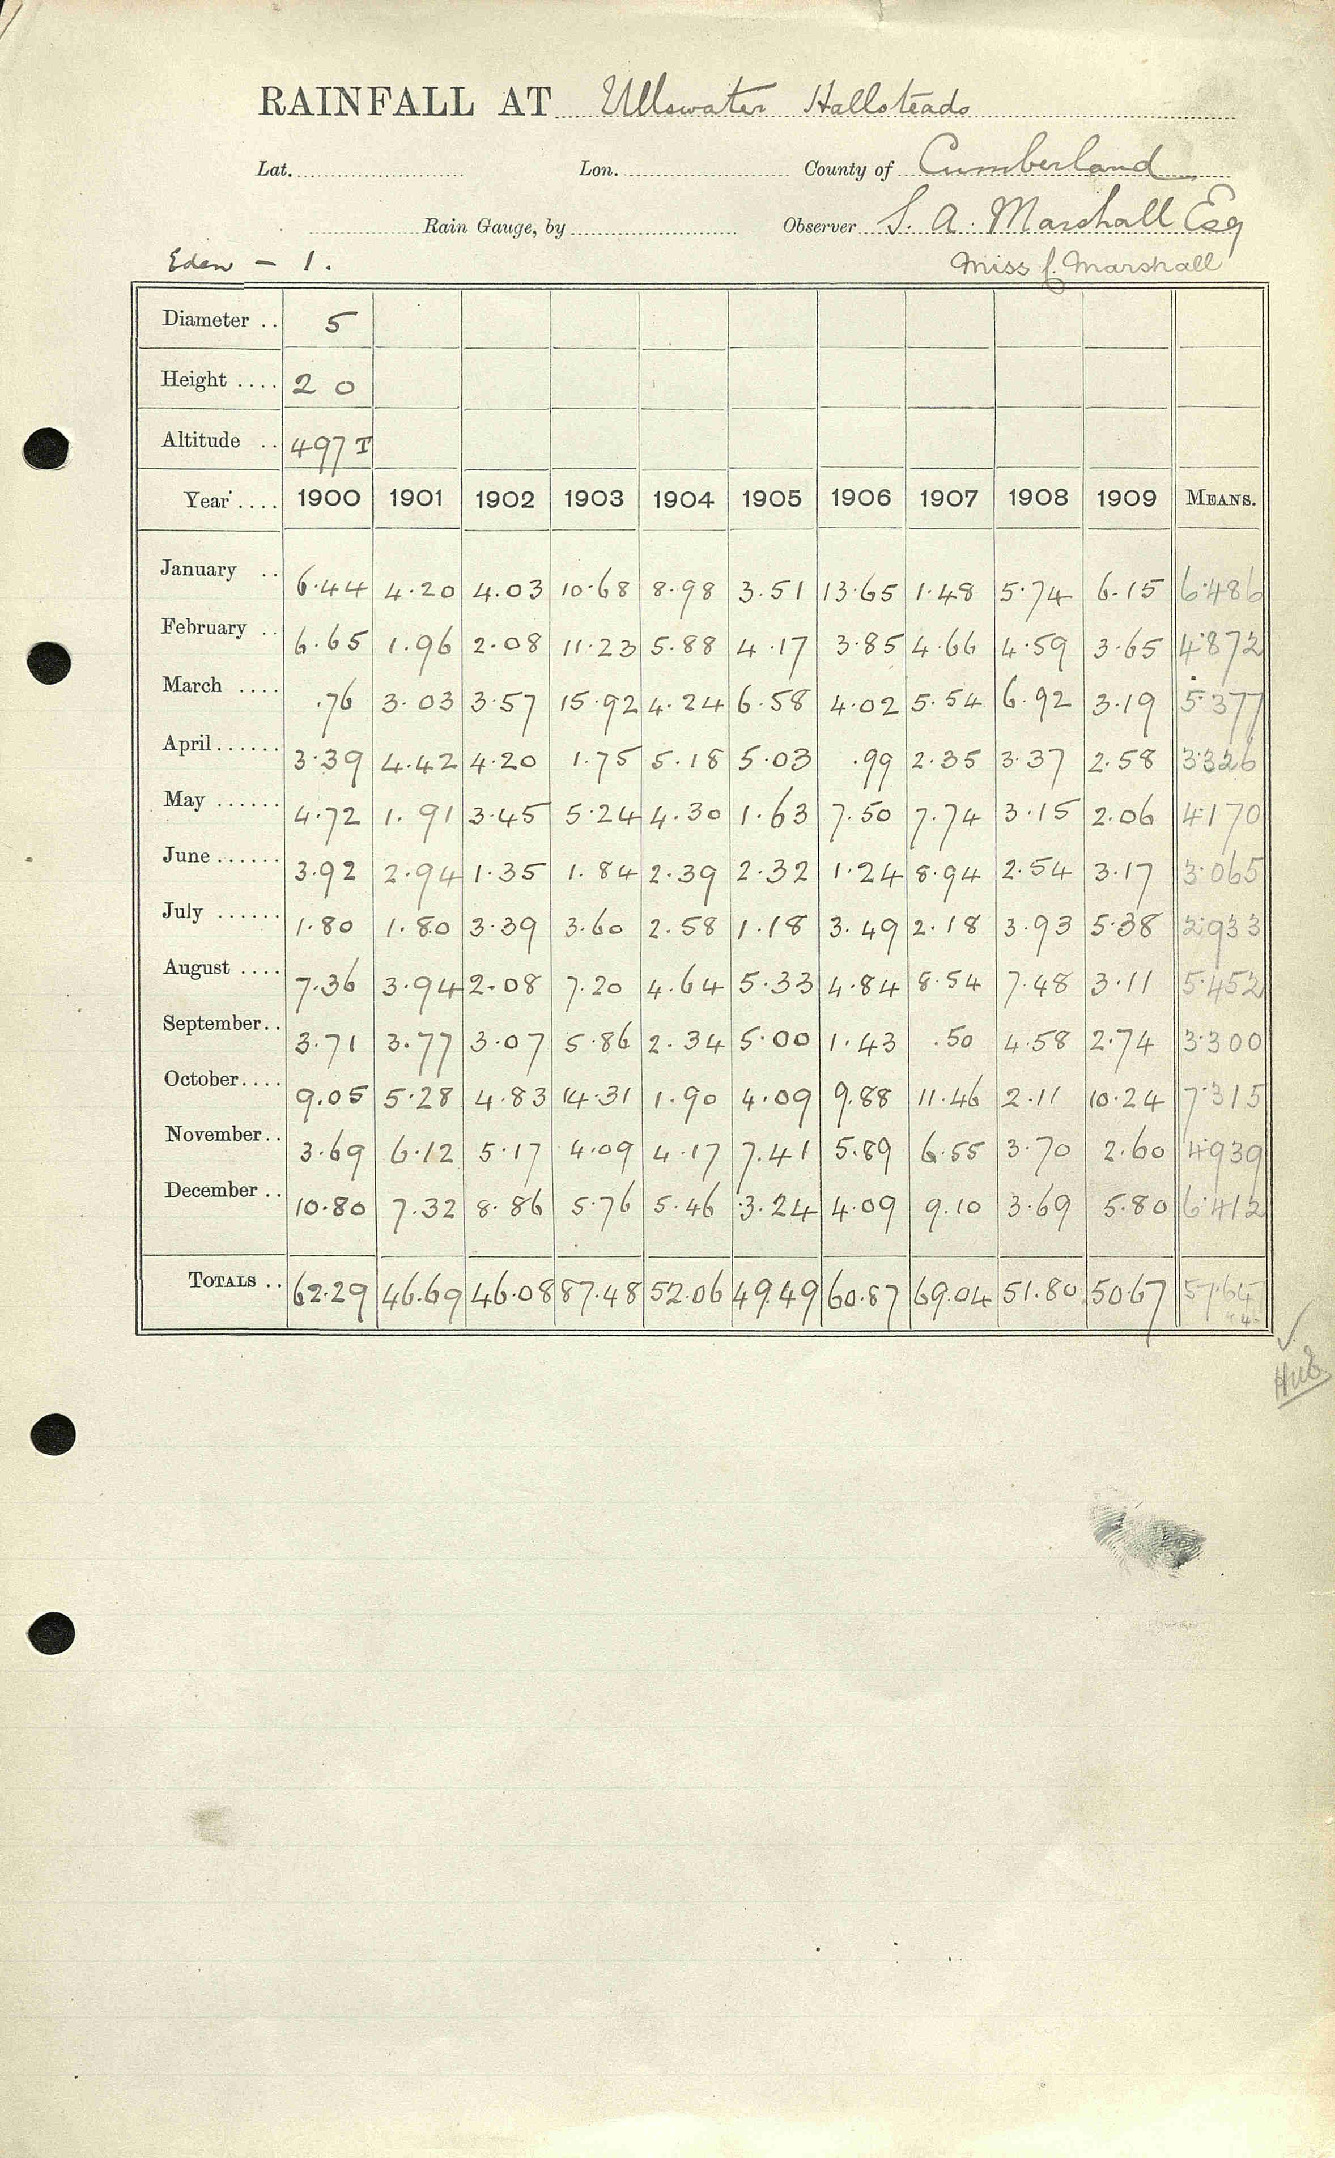 RAINFALL AT Ullswater Hallsteads
Lat. Lon. County of Cumberland
Rain Gauge, by Observer S. A. Marshall Esq
Eden - 1. Miss J. Marshall
Diameter .. 5
Height .... 2 0
Altitude .. 497 T
Year .... 1900 1901 1902 1903 1904 1905 1906 1907 1908 1909 MEANS.
January .. 6.44 4.20 4.03 10.68 8.98 3.51 13.65 1.48 5.74 6.15 6.486
February .. 6.65 1.96 2.08 11.23 5.88 4.17 3.85 4.66 4.59 3.65 4.872
March .... .76 3.03 3.57 15.92 4.24 6.58 4.02 5.54 6.92 3.19 5.377
April ...... 3.39 4.42 4.20 1.75 5.18 5.03 .99 2.35 3.37 2.58 3.326
May ...... 4.72 1.91 3.45 5.24 4.30 1.63 7.50 7.74 3.15 2.06 4.170
June ...... 3.92 2.94 1.35 1.84 2.39 2.32 1.24 8.94 2.54 3.17 3.065
July ...... 1.80 1.80 3.39 3.60 2.58 1.18 3.49 2.18 3.93 5.38 2.933
August .... 7.36 3.94 2.08 7.20 4.64 5.33 4.84 8.54 7.48 3.11 5.452
September .. 3.71 3.77 3.07 5.86 2.34 5.00 1.43 .50 4.58 2.74 3.300
October .... 9.05 5.28 4.83 14.31 1.90 4.09 9.88 11.46 2.11 10.24 7.315
November .. 3.69 6.12 5.17 4.09 4.17 7.41 5.89 6.55 3.70 2.60 4.939
December .. 10.80 7.32 8.86 5.76 5.46 3.24 4.09 9.10 3.69 5.80 6.412
TOTALS .. 62.29 46.69 46.08 87.48 52.06 49.49 60.87 69.04 51.80 50.67 57.64